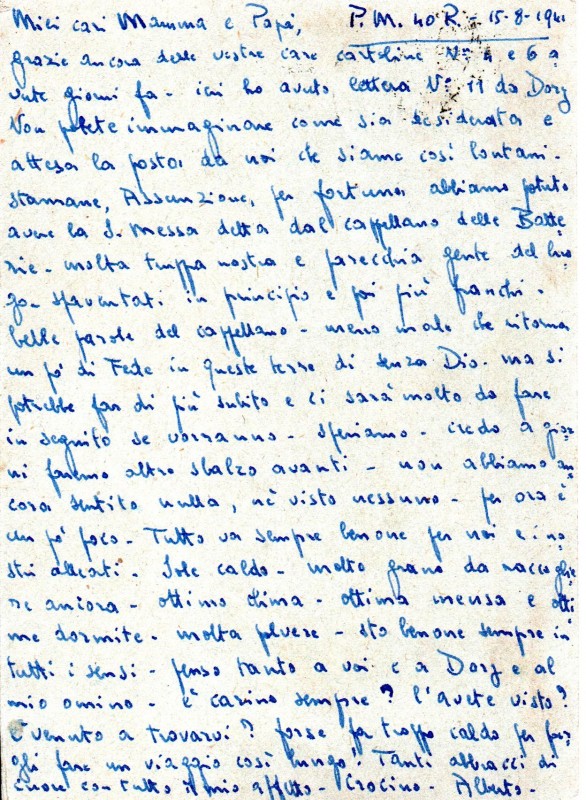 Miei cari Mamma e Papà, P.M. 40 R. - 15-8-1941
grazie ancora delle vostre care cartoline N° 4 e 6 a
vute giorni fa - ieri ho avuto lettera N° 11 da Dory
Non potete immaginare come sia desiderata e
attesa la posta da noi che siamo così lontani -
stamane, Assunzione, per fortuna abbiamo potuto
avere la S. Messa detta dal cappellano delle Batte=
rie - molta truppa nostra e parecchia gente del luo
go - spaventati in principio e poi più franchi -
belle parole del cappellano - meno male che ritorna
un po' di Fede in queste terre di senza Dio - ma si
potrebbe far di più subito e ci sarà molto da fare
in seguito se vorranno - speriamo - credo a gior
ni faremo altro sbalzo avanti - non abbiamo an
cora sentito nulla, nè visto nessuno - per ora è
un po' poco - Tutto va sempre benone per noi e i no
stri alleati - Sole caldo - molto grano da raccoglie
re ancora - ottimo clima - ottima mensa e otti
me dormite - molta polvere - sto benone sempre in
tutti i sensi - penso tanto a voi e a Dory e al
mio omino - è carino sempre? l'avete visto?
È venuto a trovarvi? forse fa troppo caldo per far
gli fare un viaggio così lungo! Tanti abbracci di
cuore con tutto il mio affetto - Crocino - Alberto -